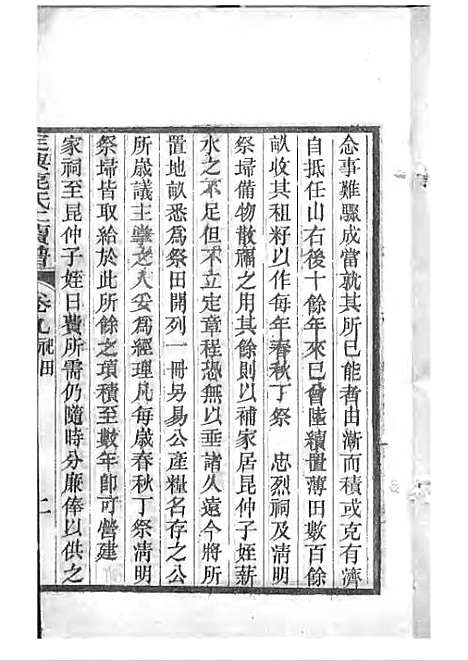 念事難驟成當就其所已能者由漸而積或克有濟
自抵任山右後十餘年來已曾陸續置薄田數百餘
畝收其租籽以作每年春秋丁祭 忠烈祠及清明
祭埽備物散禡之用其餘則以補家居昆仲子姪薪
水之不足但大曾議定章程恐無以垂諸久遠今將所
置地畝悉為祭田開列一冊另易公產糧名存之公
所歲議主之人妥為經理凡每歲春秋丁祭清明
祭埽皆取給於此所餘之項積至數年即可營建
家祠至昆仲子姪日費所需仍隨時分廉俸以供之
氏二續譜
卷九祀田
二